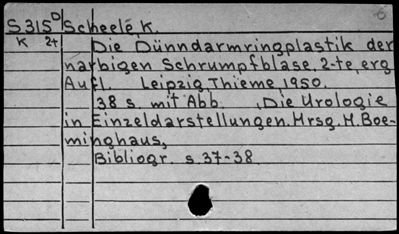 S315D Scheele, K.
K 2t Die Dünndarmringplastik der
narbigen Schrumpfblase, 2-te, erg
Aufl. Leipzig, Thieme, 1950.
38 s. mit Abb. (Die Urologie
in Einzeldarstellungen. Hrsg. H. Boe-
minghaus,
Bibliogr. s. 37-38